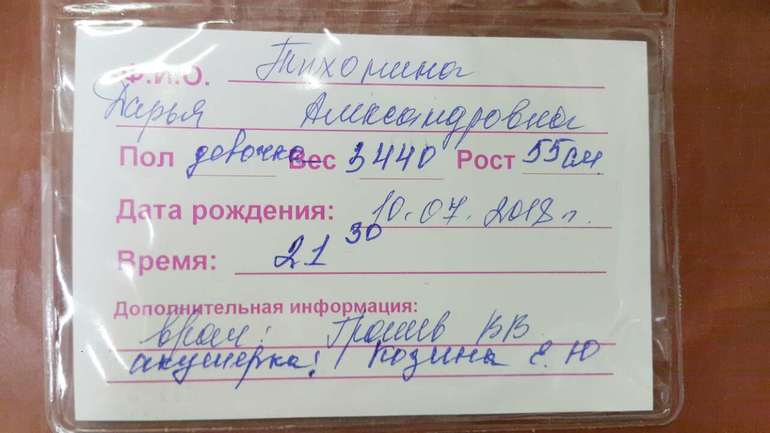 Ф.И.О. Тихомина
Дарья Александровна
Пол девочка Вес 3440 Рост 55 см.
Дата рождения: 10.07.2018 г.
Время: 21 30
Дополнительная информация:
врач: Грошев ВВ
акушерка: Козина Е.Ю